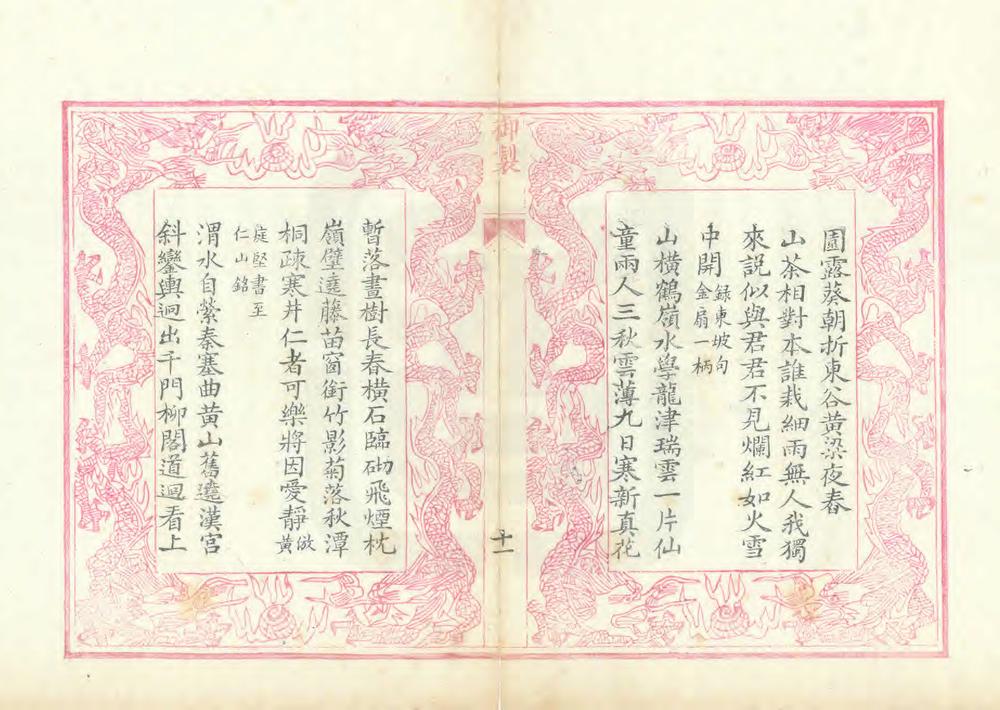 園露葵朝折東谷黃粱夜舂
山茶相對本誰栽細雨無人我獨
來説似與君君不見爛紅如火雪
中開録東坡句
金扇一柄
山橫鶴嶺水學龍津瑞雲一片仙
童兩人三秋雲薄九日寒新真花
御製
十一
暫落畫樹長春橫石臨砌飛煙枕
嶺壁遶藤苗窗銜竹影菊落秋潭
桐疎寒井仁者可樂將因愛靜倣
黃
庭堅書至
仁山銘
渭水自縈秦塞曲黃山舊遶漢宮
斜鑾輿迥出千門柳閣道迴看上